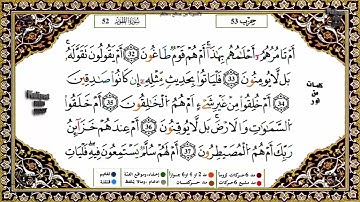 حزب 53
سورة الطور 52
أَمْ تَأْمُرُهُمْ أَحْلَامُهُمْ بِهَٰذَا أَمْ هُمْ قَوْمٌ طَاغُونَ 32 أَمْ يَقُولُونَ تَقَوَّلَهُ
بَلْ لَا يُؤْمِنُونَ 33 فَلْيَأْتُوا بِحَدِيثٍ مِثْلِهِ إِنْ كَانُوا صَادِقِينَ
34 أَمْ خُلِقُوا مِنْ غَيْرِ شَيْءٍ أَمْ هُمُ الْخَالِقُونَ 35 أَمْ خَلَقُوا
السَّمَاوَاتِ وَالْأَرْضَ بَلْ لَا يُوقِنُونَ 36 أَمْ عِنْدَهُمْ خَزَائِنُ
رَبِّكَ أَمْ هُمُ الْمُصَيْطِرُونَ 37 أَمْ لَهُمْ سُلَّمٌ يَسْتَمِعُونَ فِيهِ فَلْيَأْتِ
كلمات
من
نور